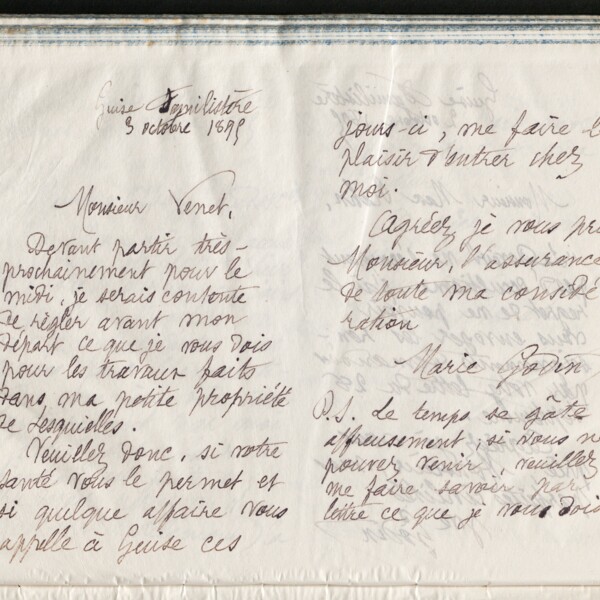 Guise Familistère
3 octobre 1895
Monsieur Venet,
Devant partir très-
prochainement pour le
midi, je serais contente
de règler avant mon
départ ce que je vous dois
pour les travaux faits
dans ma petite propriété
de Lesquielles.
Veuillez donc, si votre
santé vous le permet et
si quelque affaire vous
appelle à Guise ces
jours-ci, me faire l
plaisir d'entrer chez
moi.
Agréez, je vous pri
Monsieur, l'assurance
de toute ma considé
ration
Marie Godin
P.S. Le temps se gâte
affreusement, si vous ne
pouvez venir, veuillez
me faire savoir par
lettre ce que je vous dois